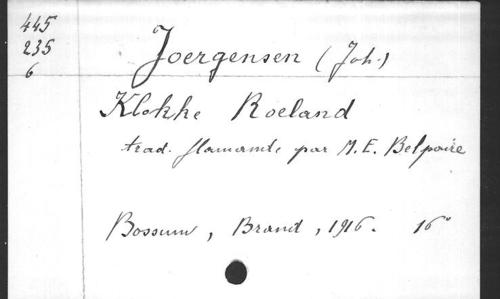 445
235
6
Joergensen (Joh.)
Klokke Roeland
trad. flamande par M. E. Belpaire
Bossum, Brand, 1916. 16°